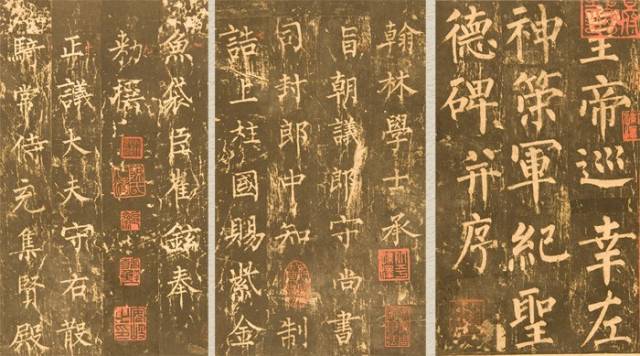 皇帝巡幸左
神策軍紀聖
德碑并序
翰林學士承
旨朝議郎守尚書
司封郎中知制
誥上柱國賜紫金
魚袋臣崔鉉奉
勑撰
正議大夫守右散
騎常侍充集賢殿